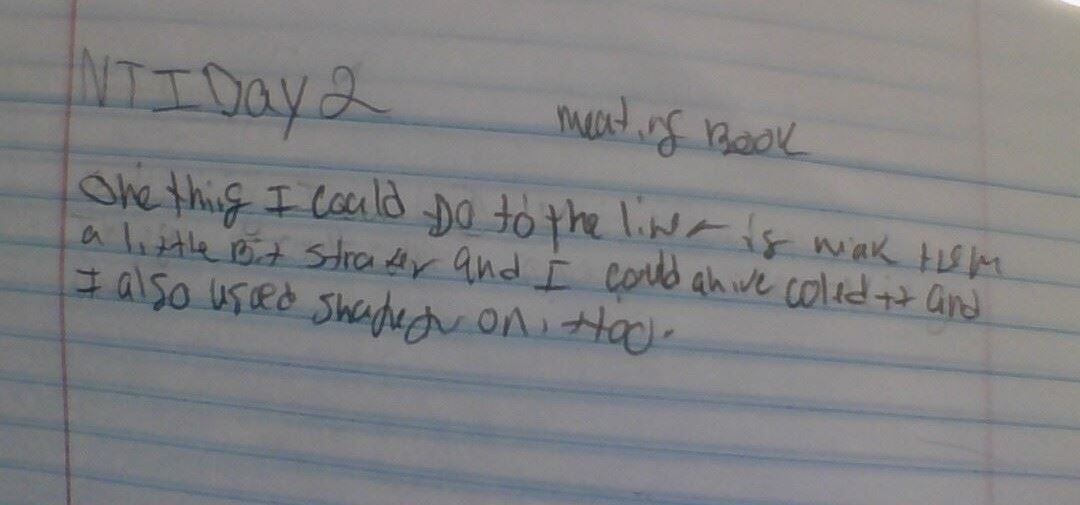 NTI Day 2
meat.ing Book
One thing I could Do to the line is miak them
a little Bit strater and I could ahve coled it and
I also used shaded on it too.